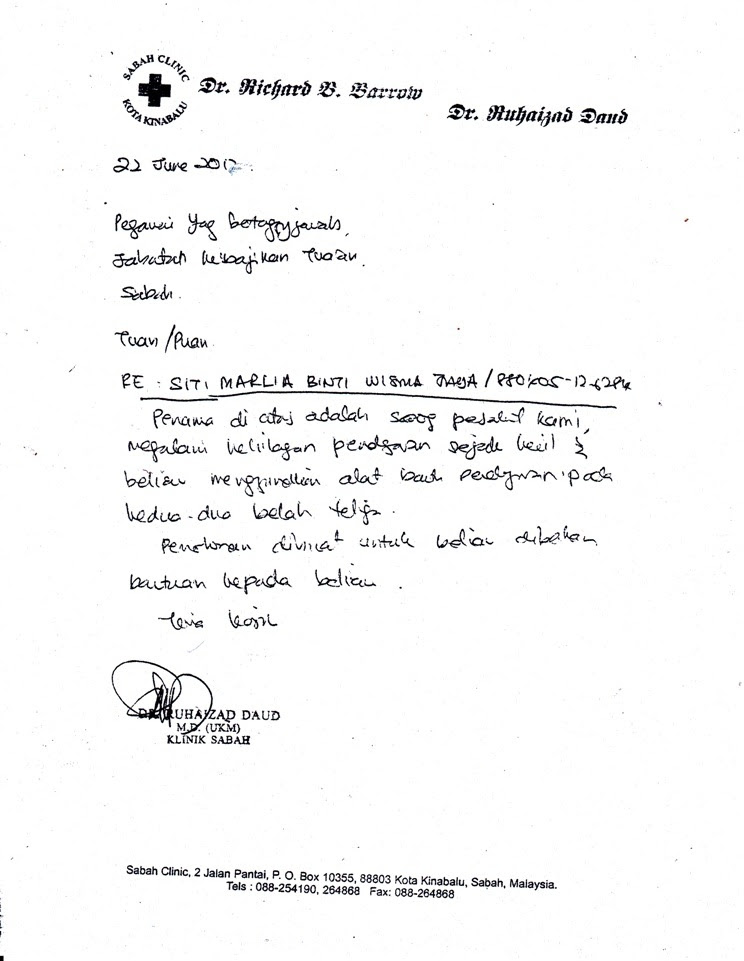 SABAH CLINIC
KOTA KINABALU
Dr. Richard B. Barrow
Dr. Ruhaizad Daud
22 June 2012
Pegawai Yag
Jabatan Kebajikan Tuaran,
Sabah.
Tuan/Puan
RE : SITI MARLIA BINTI WISMA JAYA /
Penama di atas adalah seorg pesakit kami,
megalami kehilagan pendgaran sejak kecil &
beliau menggunakan alat bantu pendgaran pada
kedua-dua belah teliga.
untuk beliau
bantuan kepada beliau.
DR. RUHAIZAD DAUD
M.D. (UKM)
KLINIK SABAH
Sabah Clinic, 2 Jalan Pantai, P. O. Box 10355, 88803 Kota Kinabalu, Sabah, Malaysia.
Tels : 088-254190, 264868 Fax: 088-264868